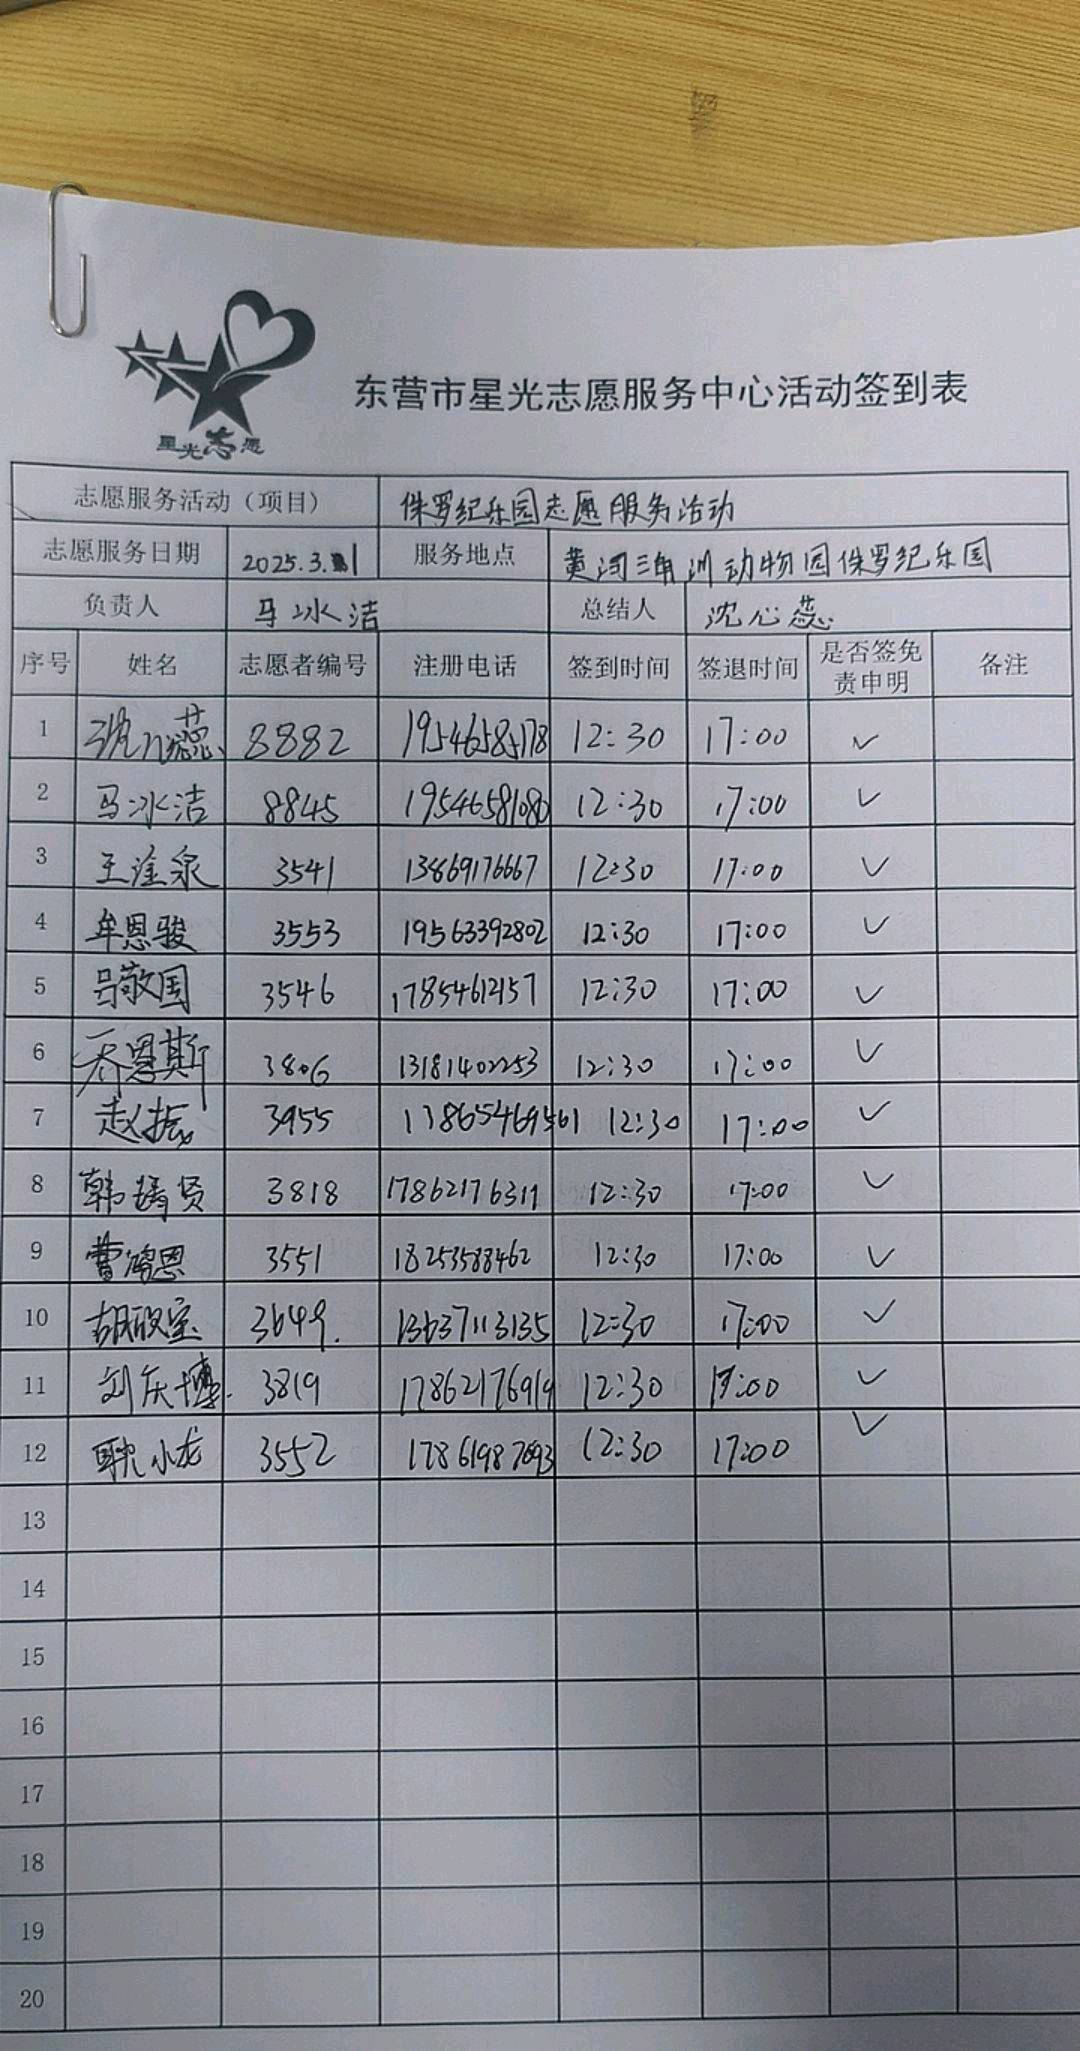 星光志愿
东营市星光志愿服务中心活动签到表
志愿服务活动（项目） 侏罗纪乐园志愿服务活动
志愿服务日期 2025.3.1 服务地点 黄河三角洲动物园侏罗纪乐园
负责人 马冰洁 总结人 沈心蕊
序号 姓名 志愿者编号 注册电话 签到时间 签退时间 是否签免责申明 备注
1 沈心蕊 8882 19546585178 12:30 17:00 ✓
2 马冰洁 8845 19546581080 12:30 17:00 ✓
3 王淦泉 3541 13869176667 12:30 17:00 ✓
4 牟恩骏 3553 19563392802 12:30 17:00 ✓
5 吕敬国 3546 17854612157 12:30 17:00 ✓
6 乔恩斯 3806 13181402253 12:30 17:00 ✓
7 赵振 3955 13865469561 12:30 17:00 ✓
8 韩 贤 3818 17862176311 12:30 17:00 ✓
9 曹鸿恩 3551 18253588462 12:30 17:00 ✓
10 胡 3649. 13637113135 12:30 17:00 ✓
11 刘庆博. 3819 17862176919 12:30 17:00 ✓
12 耿小龙 3552 17861987693 12:30 17:00 ✓
13
14
15
16
17
18
19
20